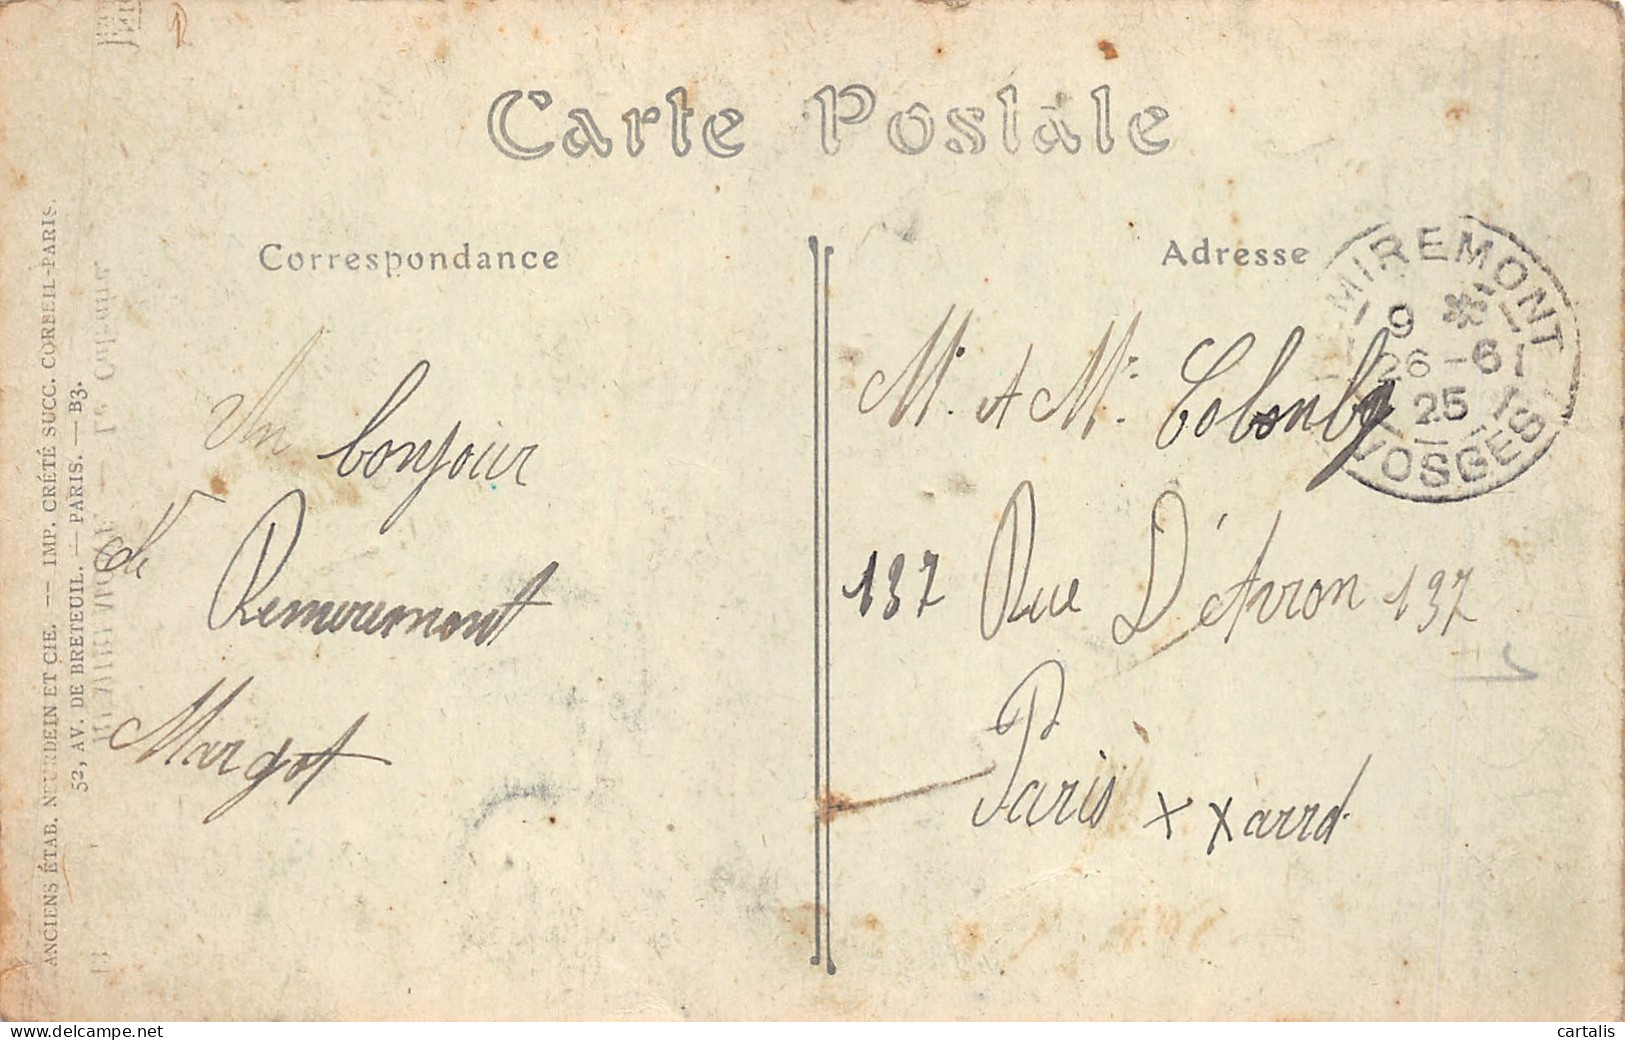 Carte Postale
Correspondance
Un bonjour
de
Remeremont
Margot
Adresse
M. et Mme Colomby
137 Rue D'Avron 137
Paris XX arrd.
MIREMONT
9 *
26-6
25
VOSGES
ANCIENS ÉTAB. NEURDEIN ET CIE. — IMP. CRÉTÉ SUCC. CORBEIL-PARIS.
52, AV. DE BRETEUIL. — PARIS. — B3.
www.delcampe.net
cartalis